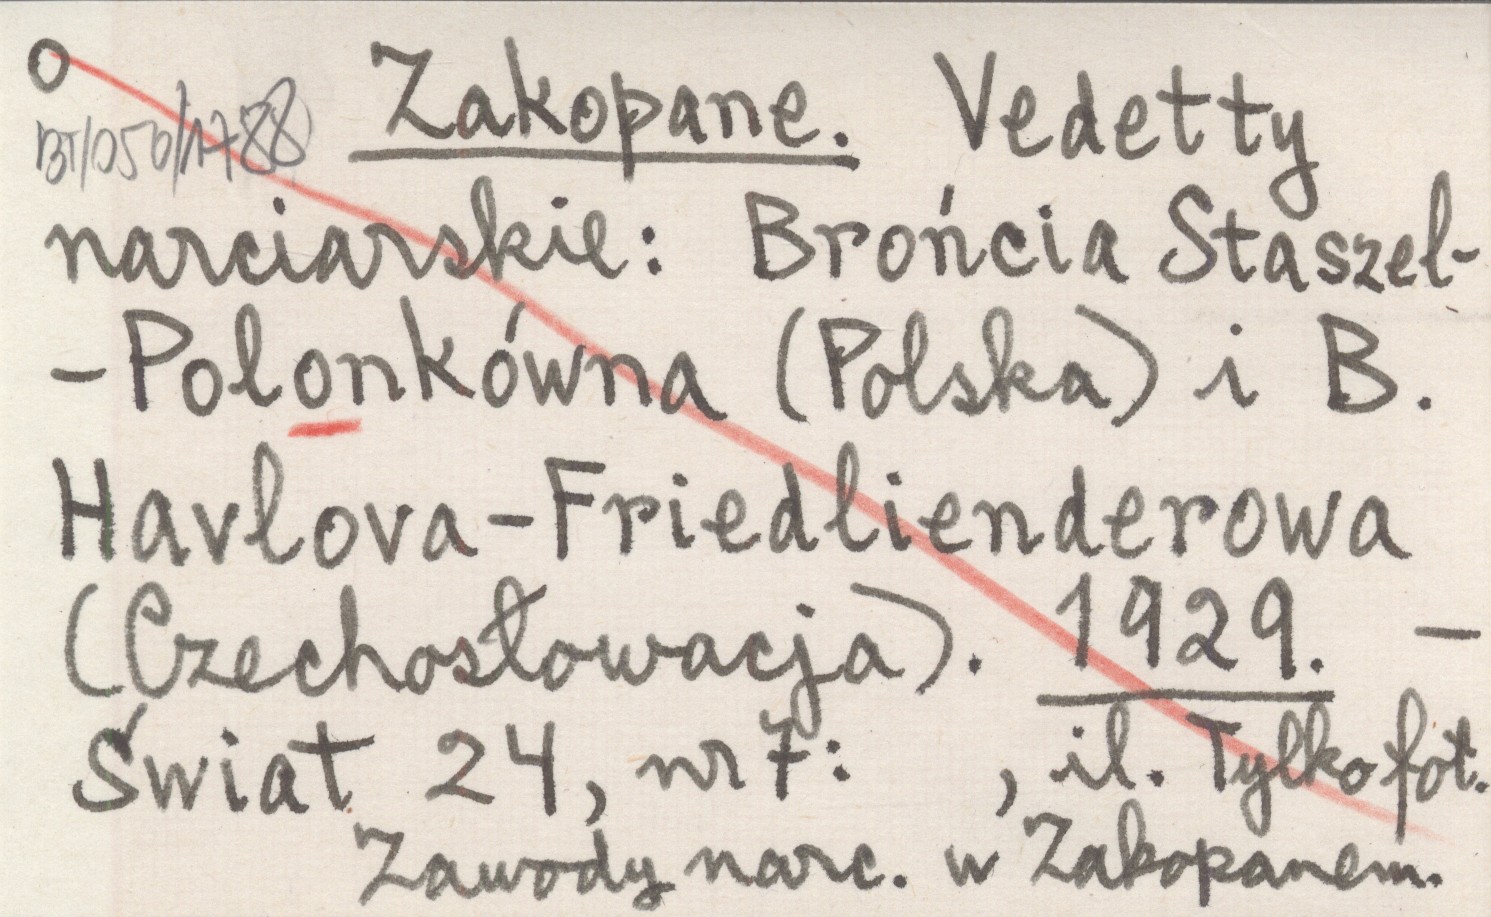 O
BT/050/1788 Zakopane. Vedetty
narciarskie: Brońcia Staszel-
-Polonkówna (Polska) i B.
Havlova-Friedlienderowa
(Czechosłowacja). 1929. -
Świat 24, nr 7: , il. Tylko fot.
Zawody narc. w Zakopanem.